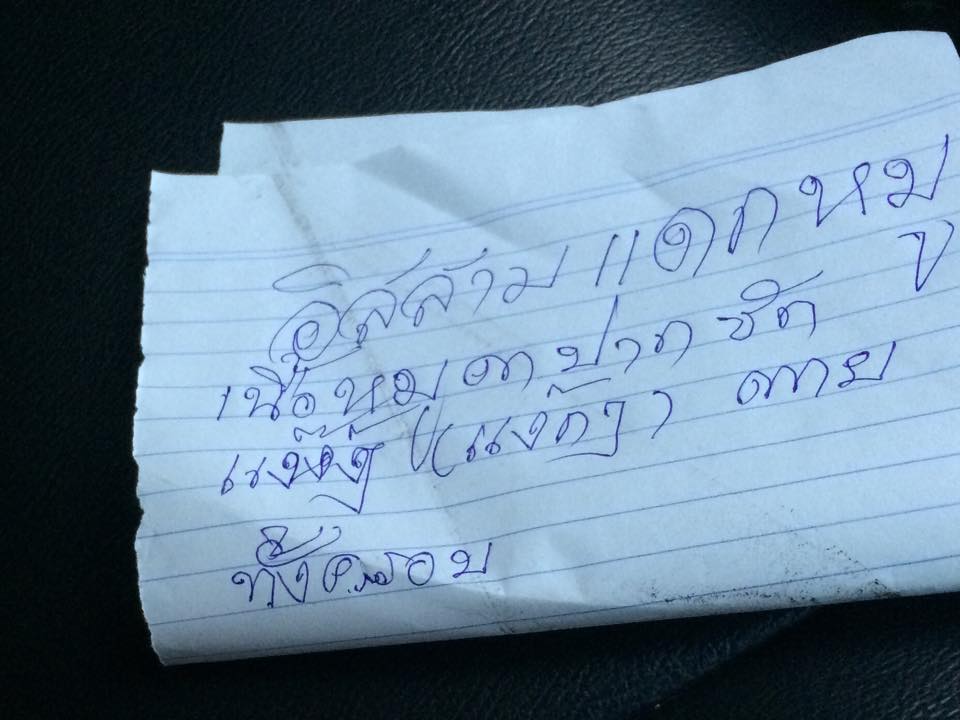 อิสลามแดกหมู
เนื้อหมูคาปาก ชัก
(แง๊กๆ) ตาย
ทั้งครอบ